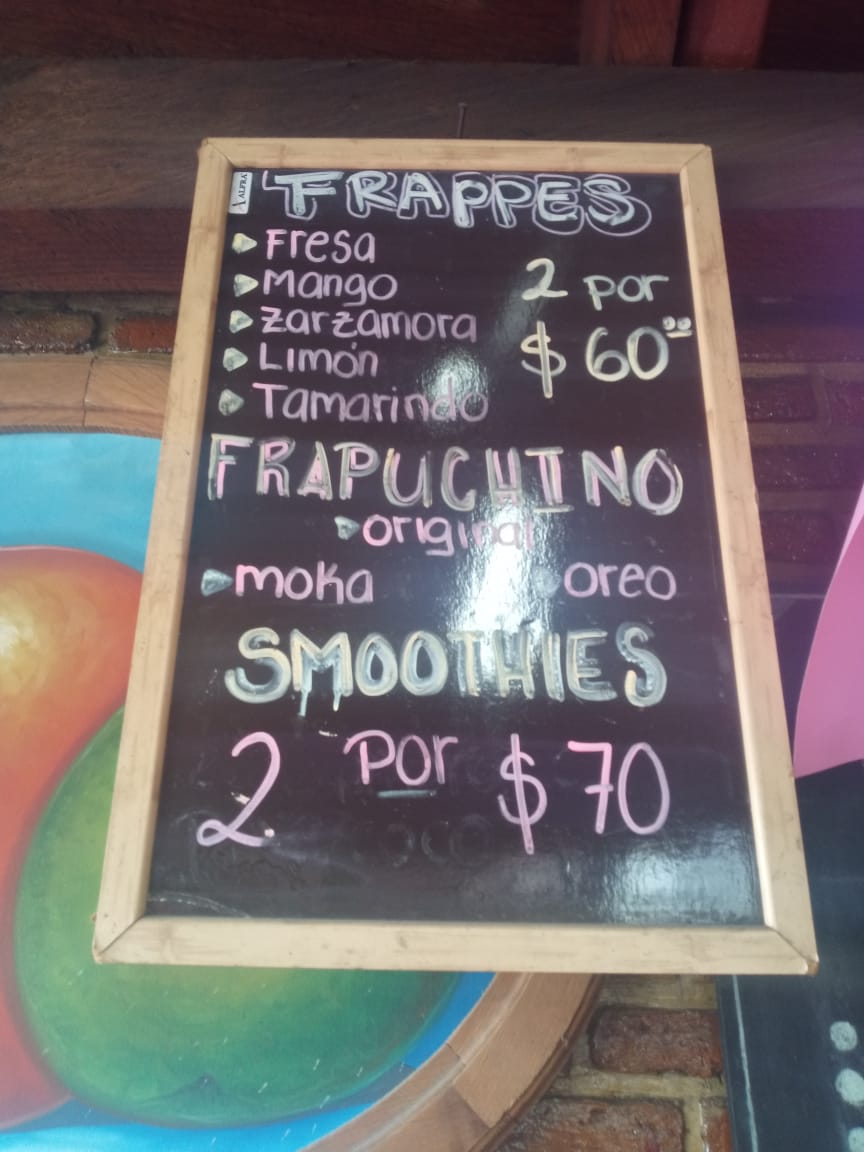 ALFRA
FRAPPES
Fresa
Mango
Zarzamora
Limón
Tamarindo
2 por
$60.00
FRAPUCHINO
original
moka
oreo
SMOOTHIES
2 por $70